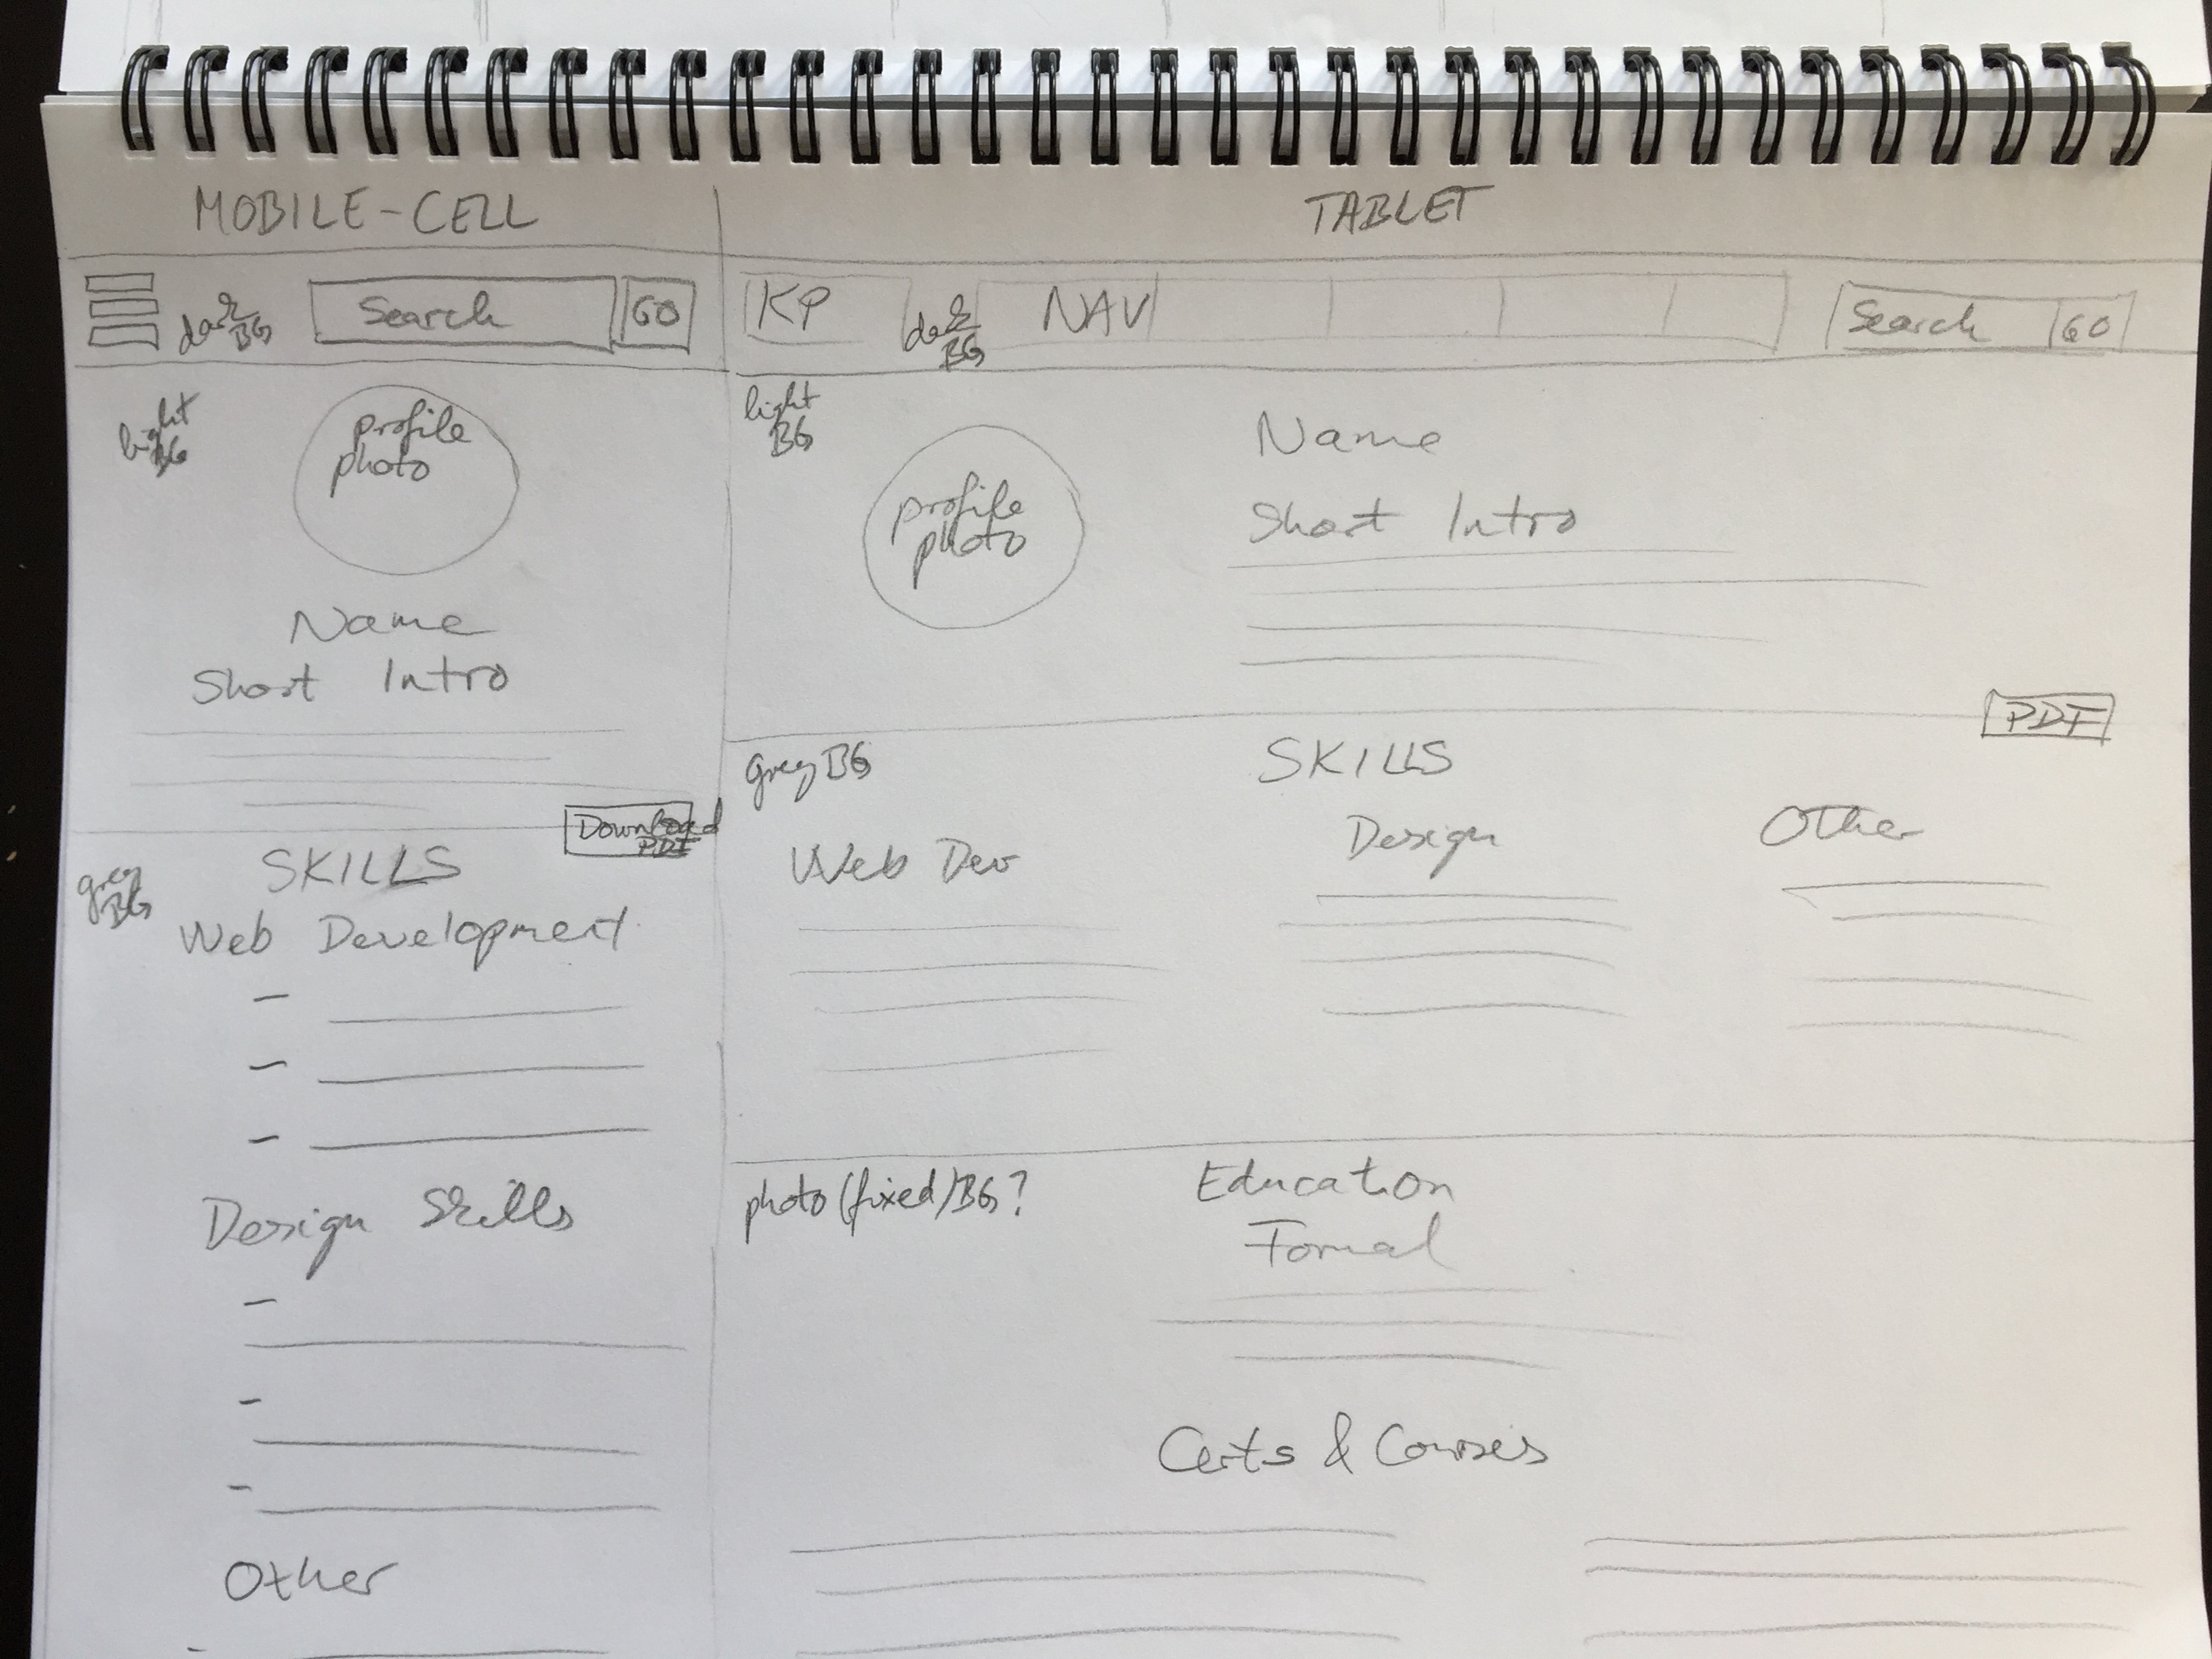 MOBILE-CELL
dark BG
Search
GO
light BG
profile
photo
Name
Short Intro
Download
PDF
SKILLS
grey BG
Web Development
Design Skills
Other
TABLET
KP
dark BG
NAV
Search
GO
light BG
profile
photo
Name
Short Intro
PDF
grey BG
SKILLS
Web Dev
Design
Other
photo/fixed/BG?
Education
Formal
Certs & Courses